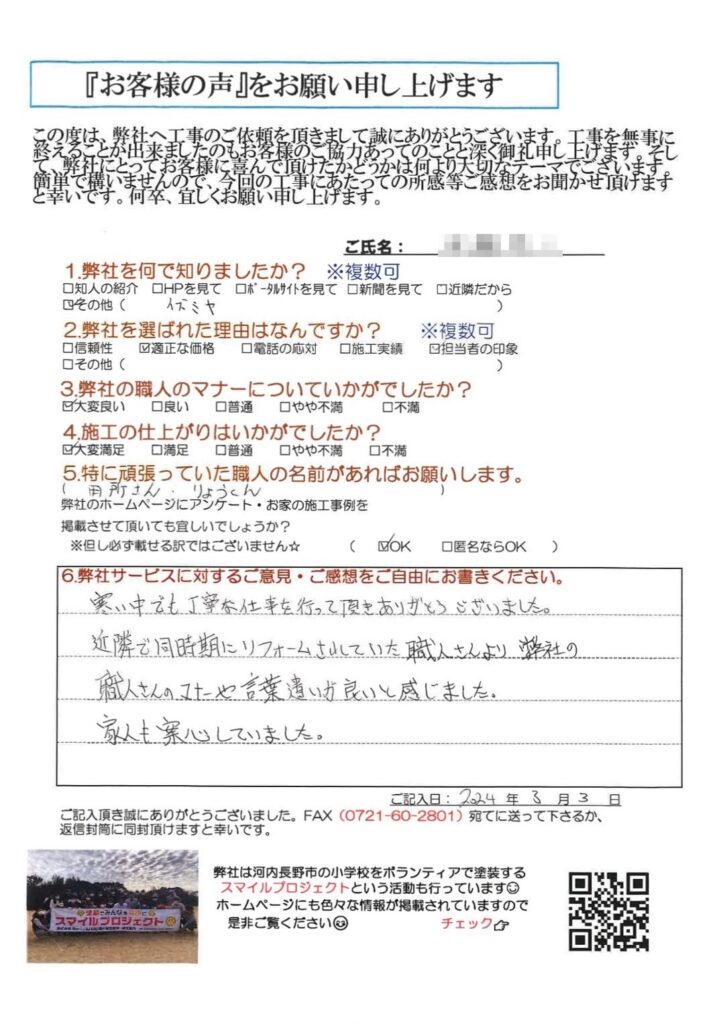 『お客様の声』をお願い申し上げます
この度は、弊社へ工事のご依頼を頂きまして誠にありがとうございます。工事を無事に
終えることが出来ましたのもお客様のご協力あってのことと深く御礼申し上げます。そし
て、弊社にとってお客様に喜んで頂けたかどうかは何より大切なテーマでございます。
簡単で構いませんので、今回の工事にあたっての所感等ご感想をお聞かせ頂けますと
と幸いです。何卒、宜しくお願い申し上げます。
ご氏名：
1.弊社を何で知りましたか？ ※複数可
□知人の紹介 □HPを見て □ポータルサイトを見て □新聞を見て □近隣だから
☑その他（ イズミヤ ）
2.弊社を選ばれた理由はなんですか？ ※複数可
□信頼性 ☑適正な価格 □電話の応対 □施工実績 ☑担当者の印象
□その他（ ）
3.弊社の職人のマナーについていかがでしたか？
☑大変良い □良い □普通 □やや不満 □不満
4.施工の仕上がりはいかがでしたか？
☑大変満足 □満足 □普通 □やや不満 □不満
5.特に頑張っていた職人の名前があればお願いします。
（ 田所さん・りょうくん ）
弊社のホームページにアンケート・お家の施工事例を
掲載させて頂いても宜しいでしょうか？
※但し必ず載せる訳ではございません☆ （ ☑OK □匿名ならOK ）
6.弊社サービスに対するご意見・ご感想をご自由にお書きください。
寒い中でも丁寧な仕事を行って頂きありがとうございました。
近隣で同時期にリフォームされていた職人さんより弊社の
職人さんのマナーや言葉遣いが良いと感じました。
家人も安心していました。
ご記入日：2024年3月3日
ご記入頂き誠にありがとうございました。FAX（0721-60-2801）宛てに送って下さるか、
返信封筒に同封頂けますと幸いです。
弊社は河内長野市の小学校をボランティアで塗装する
スマイルプロジェクトという活動も行っています☺
ホームページにも色々な情報が掲載されていますので
是非ご覧ください☺ チェック☞
スマイルプロジェクト